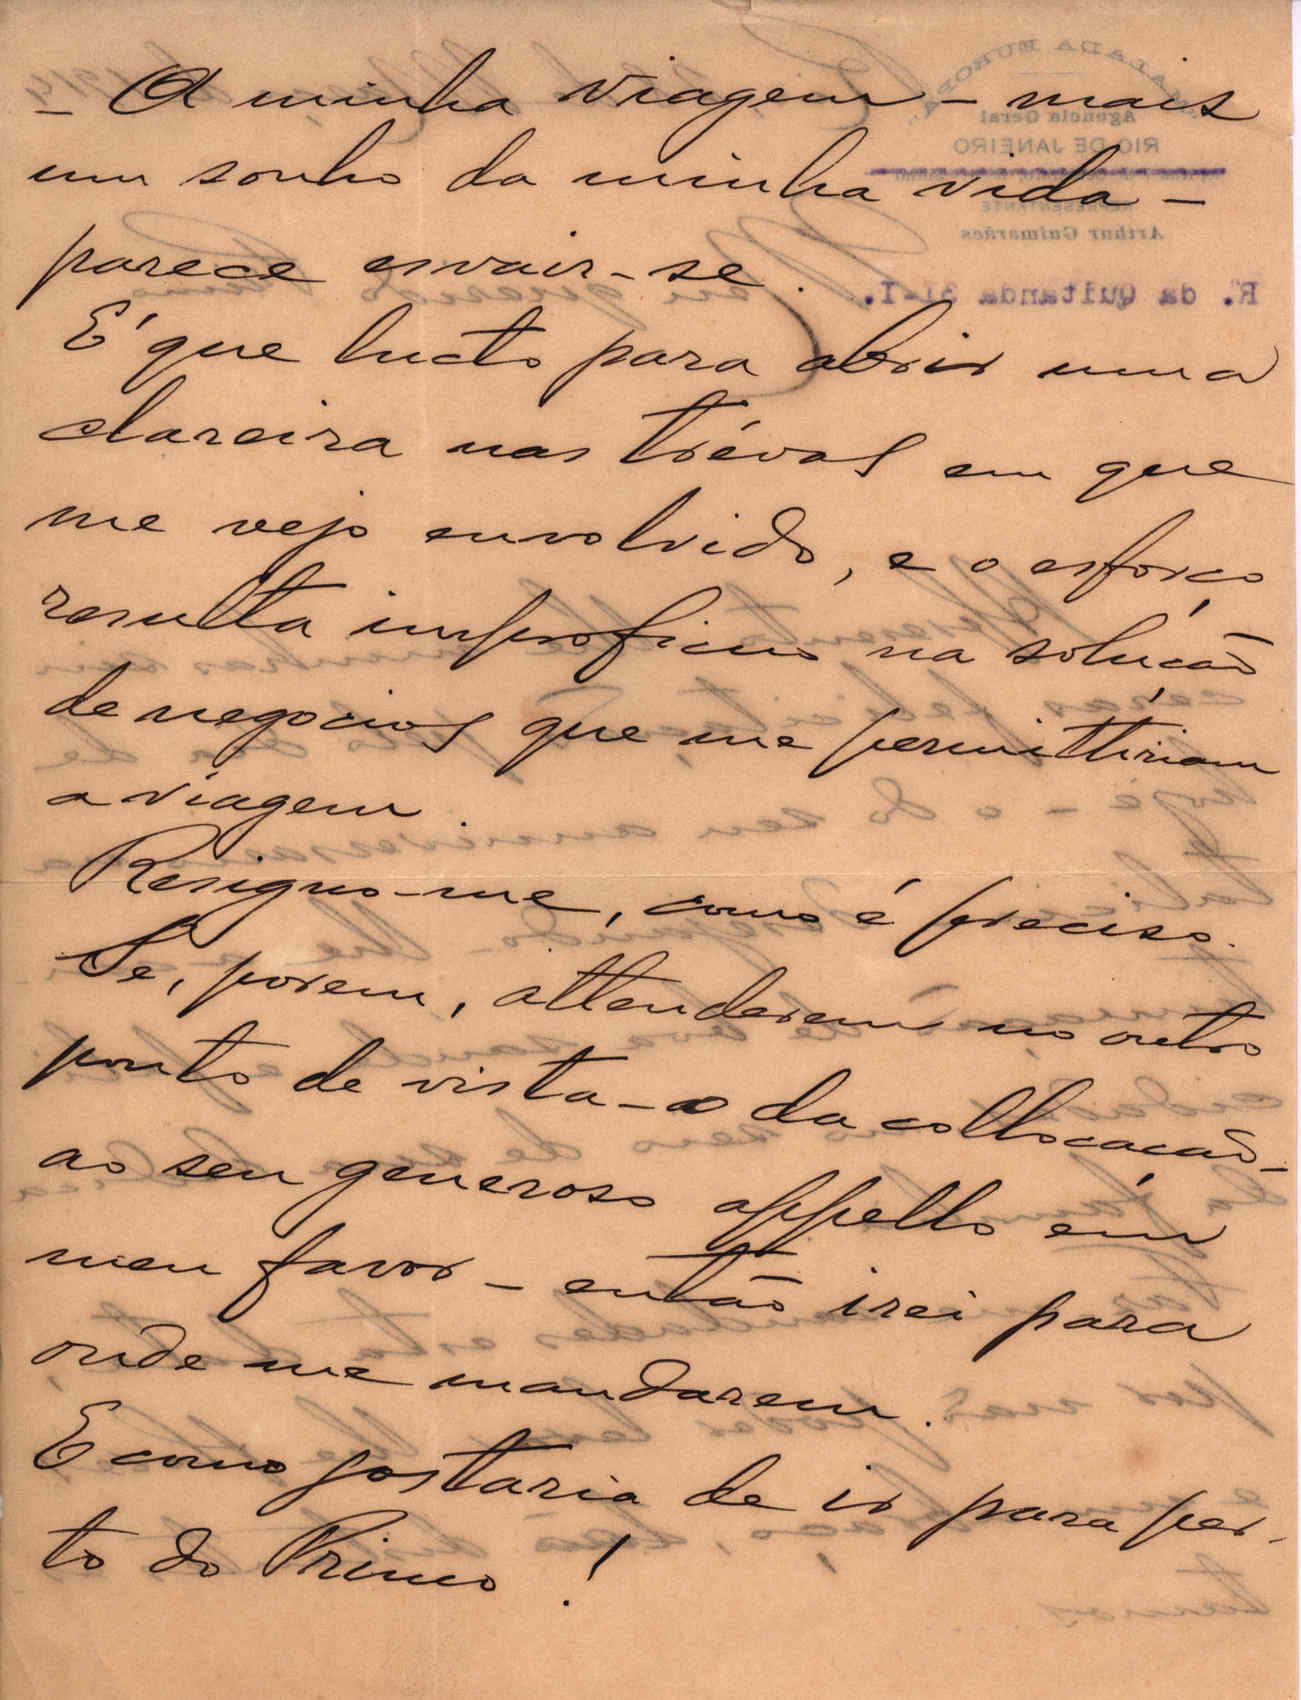 – A minha viagem – mais
um sonho da minha vida –
parece esvair-se.
E' que lucto para abrir uma
clareira nas trévas em que
me vejo envolvido, e o esforço
resulta improficuo na solução
de negocios que me permittiriam
a viagem
Resigno-me, como é preciso.
Se, porem, attenderem no outro
ponto de vista – o da collocação –
ao seu generoso appello em
meu favor – então irei para
onde me mandarem.
E como gostaria de ir para per-
to do Primo!
Agencia Geral
RIO DE JANEIRO
REPRESENTANTE
Arthur Guimarães
R. da Quitanda 31-I.